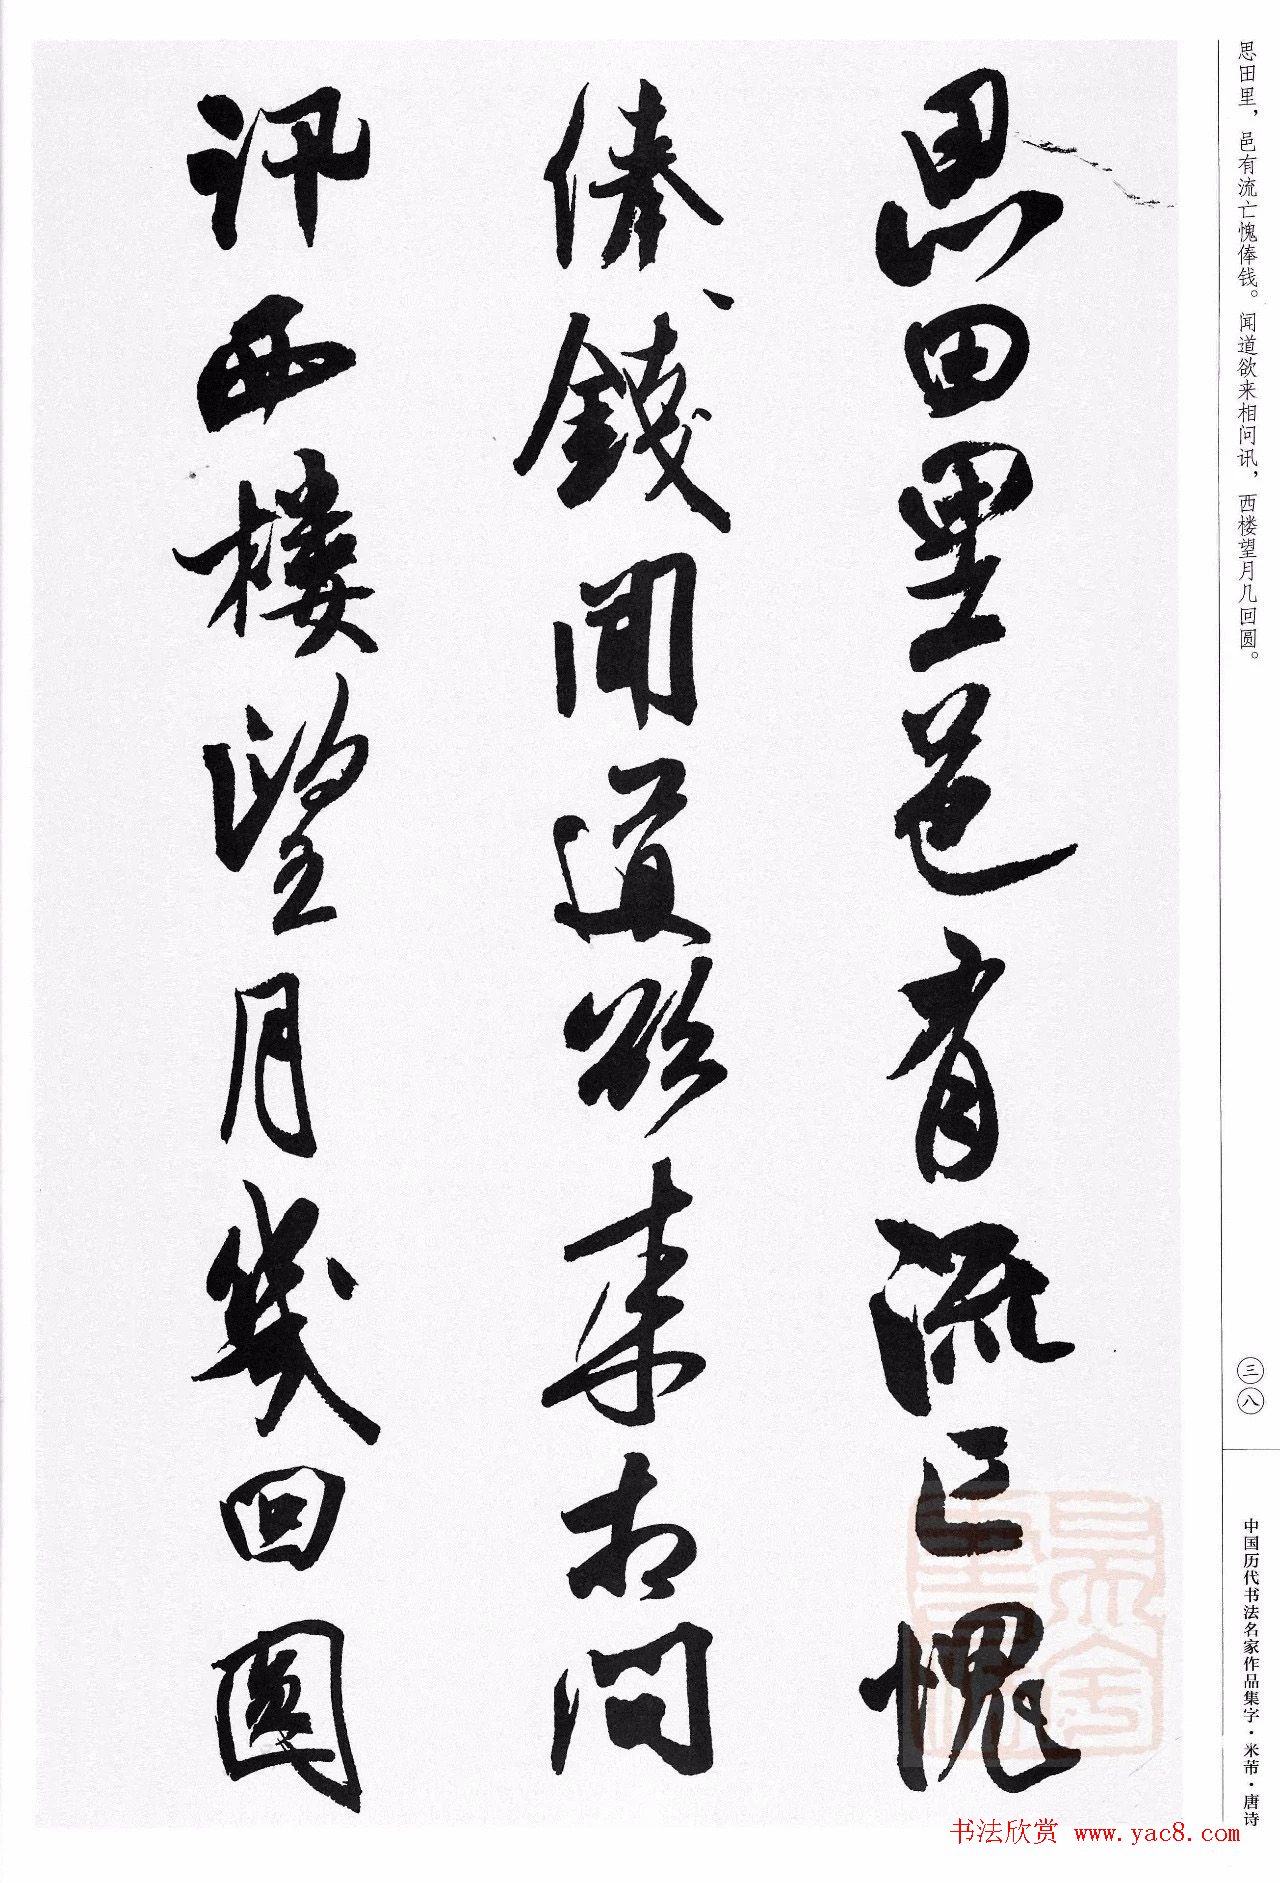 思田里，邑有流亡愧俸钱。闻道欲来相问讯，西楼望月几回圆。
思田里邑有流亡愧
俸錢聞道欲来相問
訊西樓望月幾回圓
三八
中国历代书法名家作品集字·米芾·唐诗
书法欣赏 www.yac8.com